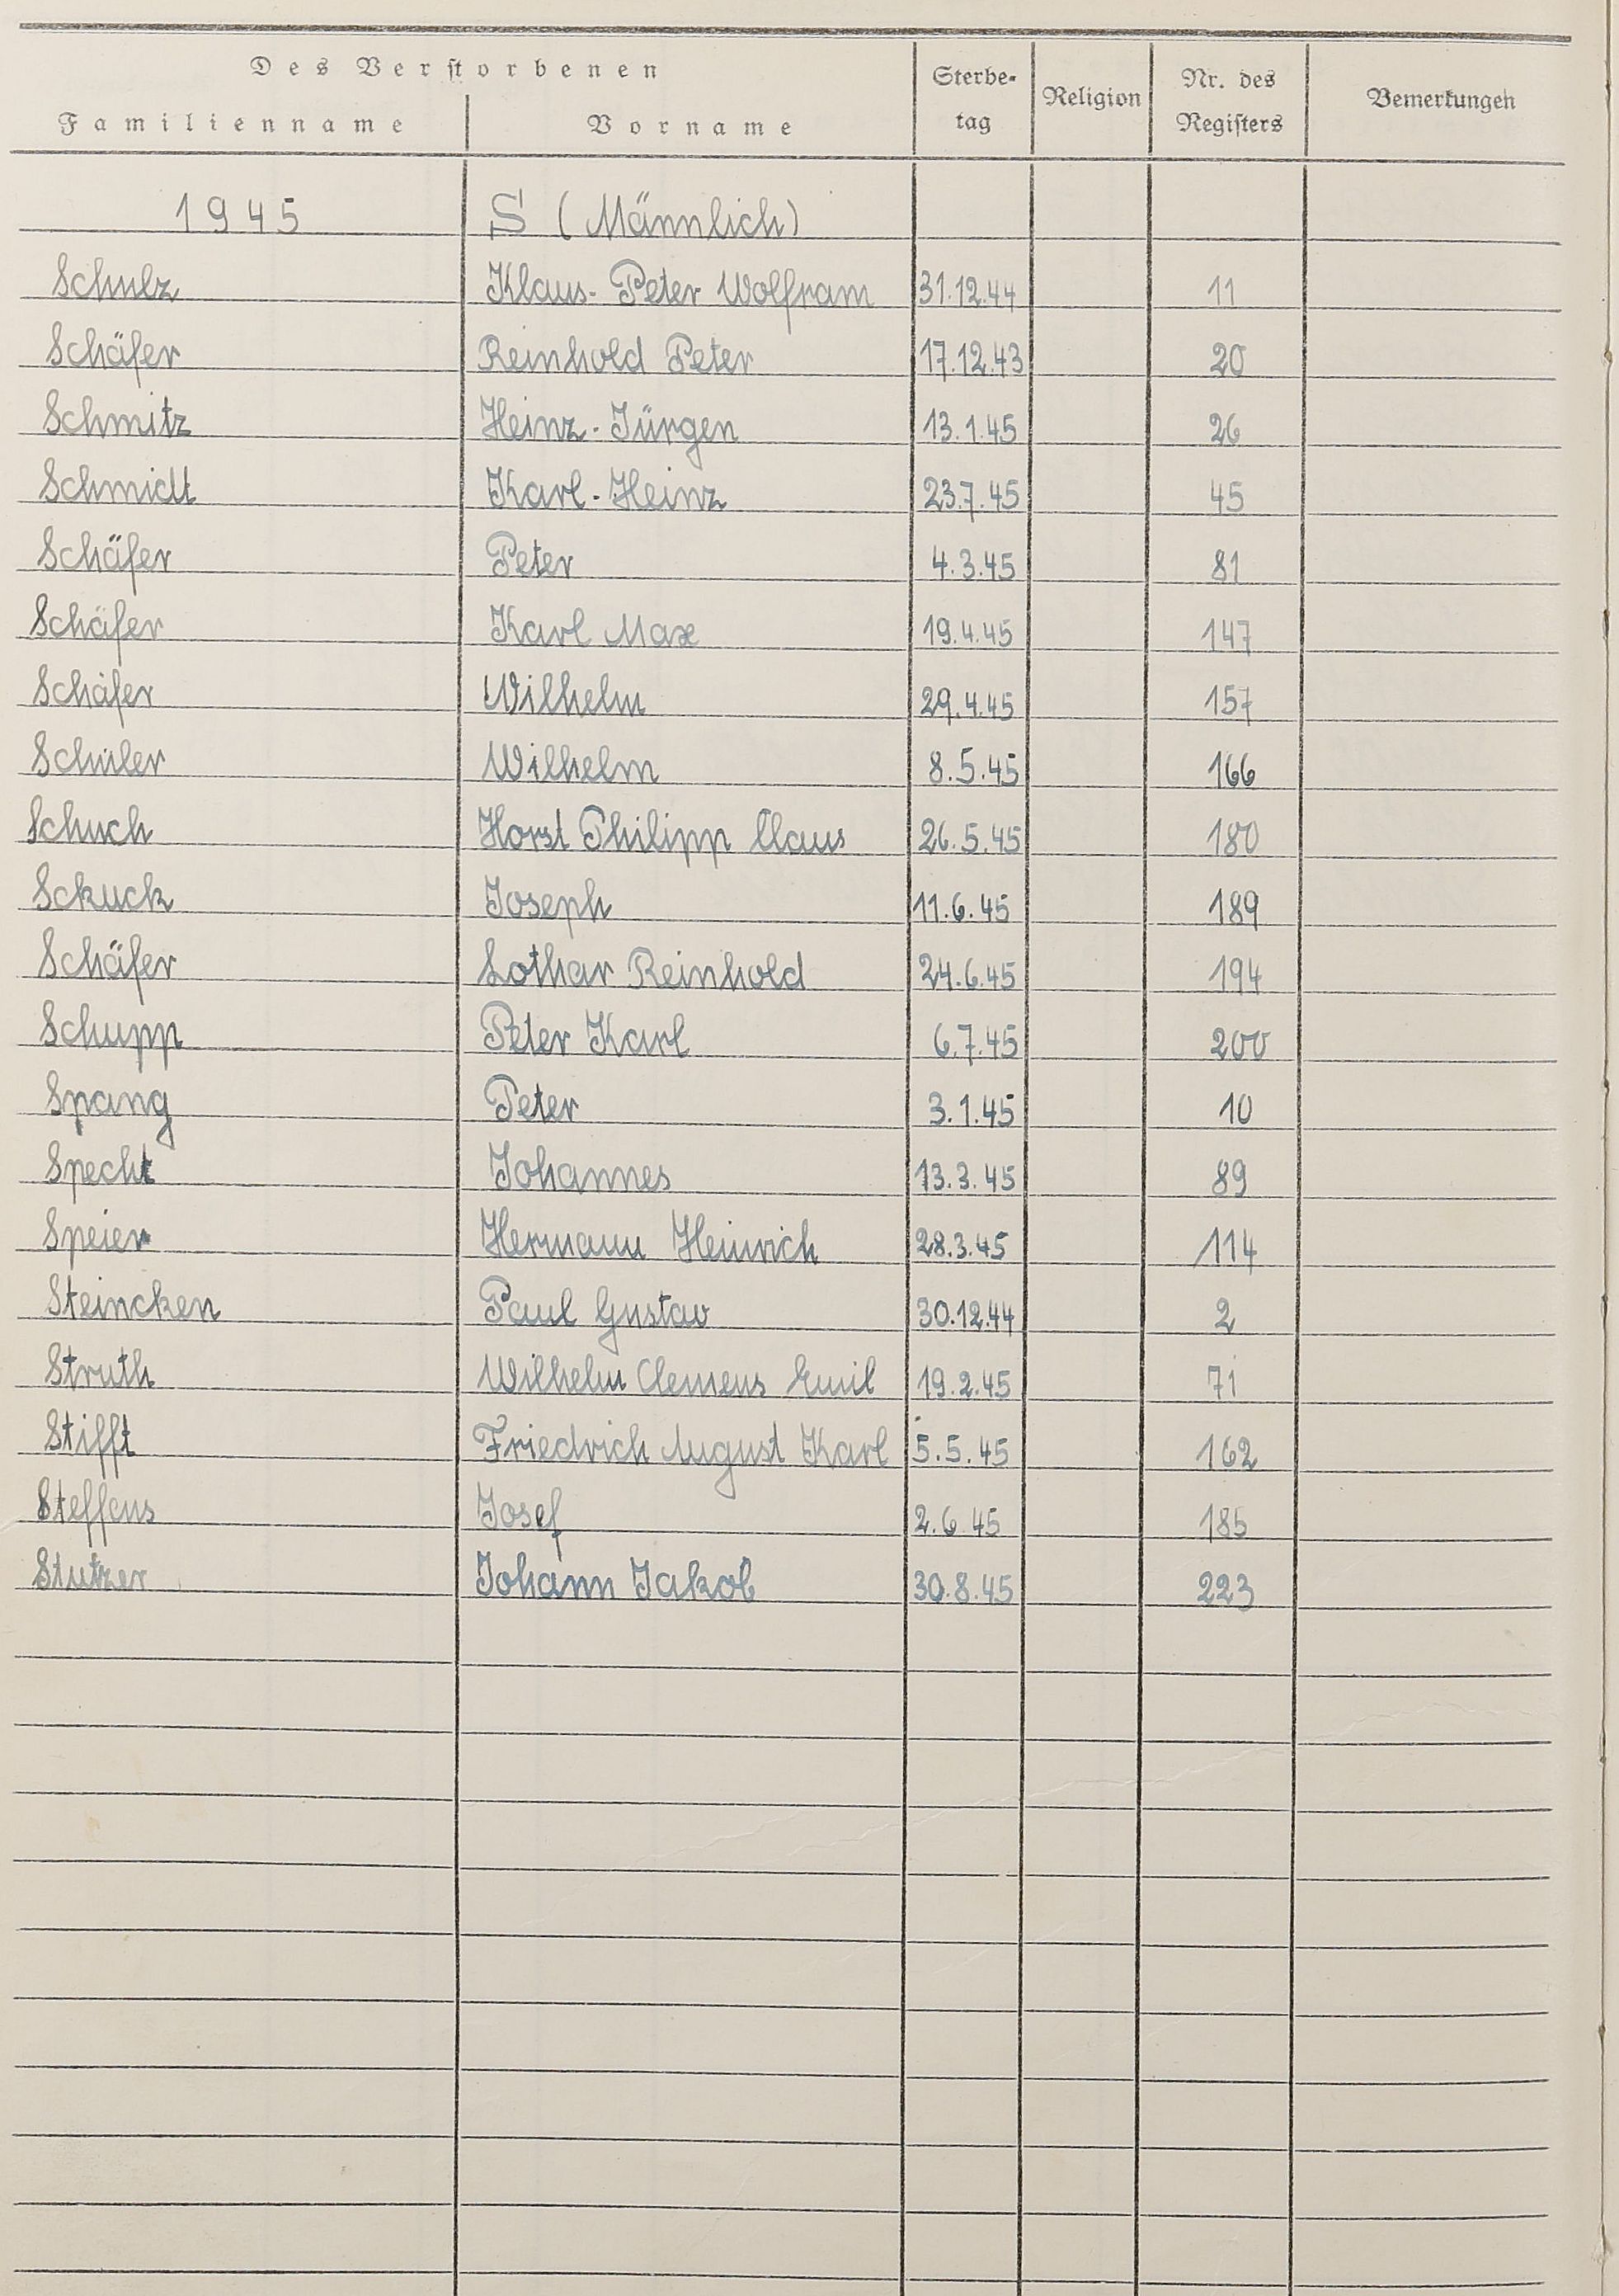 Des Verstorbenen
Familienname Vorname Sterbe-tag Religion Nr. des Registers Bemerkungen
1945 S (Männlich)
Schulz Klaus-Peter Wolfram 31.12.44 11
Schäfer Reinhold Peter 17.12.43 20
Schmitz Heinz-Jürgen 13.1.45 26
Schmidt Karl-Heinz 23.7.45 45
Schäfer Peter 4.3.45 81
Schäfer Karl Max 19.4.45 147
Schäfer Wilhelm 29.4.45 157
Schüler Wilhelm 8.5.45 166
Schuch Horst Philipp Claus 26.5.45 180
Sckuck Joseph 11.6.45 189
Schäfer Lothar Reinhold 24.6.45 194
Schupp Peter Karl 6.7.45 200
Spang Peter 3.1.45 10
Specht Johannes 13.3.45 89
Speier Hermann Heinrich 28.3.45 114
Steincken Paul Gustav 30.12.44 2
Struth Wilhelm Clemens Emil 19.2.45 71
Stifft Friedrich August Karl 5.5.45 162
Steffens Josef 2.6.45 185
Stutzer Johann Jakob 30.8.45 223